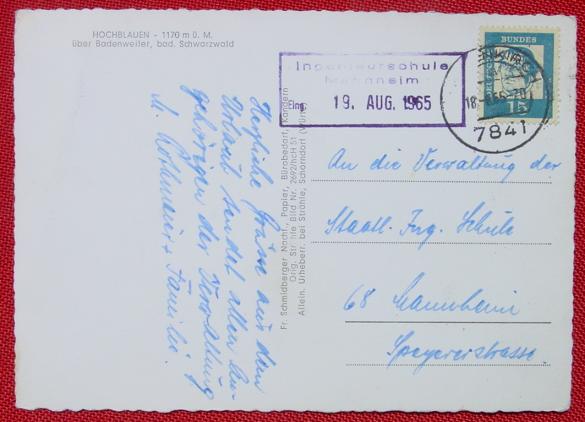 HOCHBLAUEN - 1170 m ü. M.
über Badenweiler, bad. Schwarzwald
Herzliche Grüße aus dem
Urlaub sendet allen An-
gehörigen der Verwaltung
M. u. Familie.
Fr. Schmidberger Nachf., Papier, Bürobedarf, Kandern
Orig. Strähle Bild Nr. 2692/hcH 51
Allein. Urheberr. bei Strähle, Schorndorf (Württ.)
Ingenieurschule
Mannheim
Eing. 19. AUG. 1965
DEUTSCHE BUNDES
15
7841
An die Verwaltung der
Staatl. Ing. Schule
68 Mannheim
Speyererstrasse.